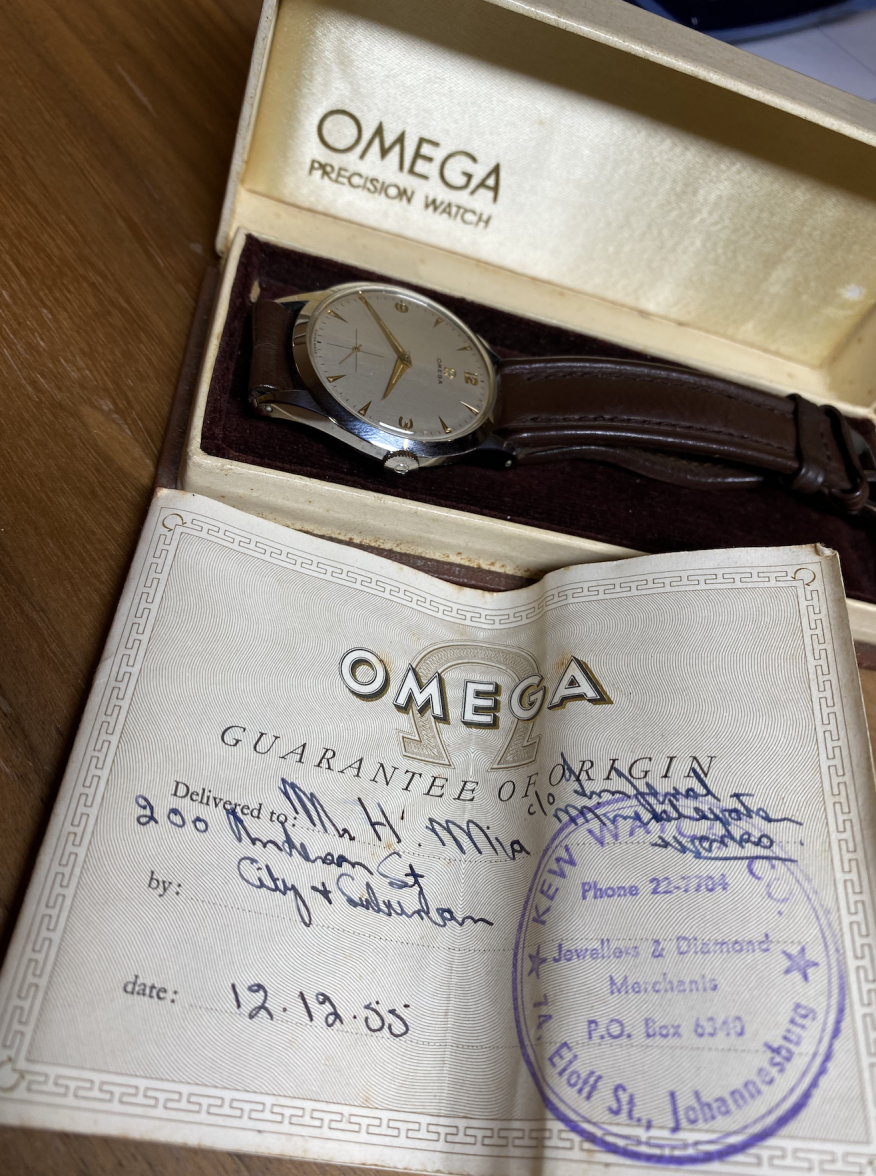 OMEGA
PRECISION WATCH
12
OMEGA
3
OMEGA
GUARANTEE OF ORIGIN
Delivered to: Mr H. Mia c/o
200 Anderson St
by: City & Suburban
date: 12.12.55
KEW WATCH CO.
Phone 22-7704
Jewellers & Diamond
Merchants
P.O. Box 6340
Eloff St., Johannesburg